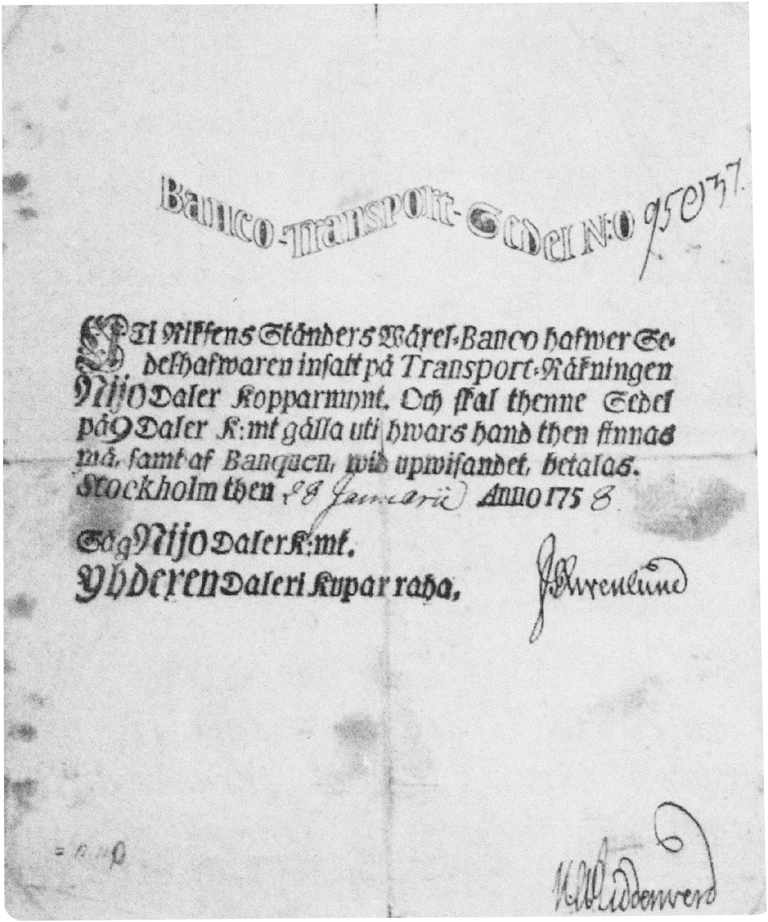 Banco-Transport-Sedel N:o 95037.
UTi Rikſens Ständers Wäxel-Banco hafwer Se-
delhafwaren inſatt på Transport-Räkningen
Nijo Daler Kopparmynt. Och ſkal thenne Sedel
på 9 Daler K:mt gälla uti hwars hand then finnas
må, ſamt af Banquen, wid upwiſandet, betalas.
Stockholm then 28 Januarii Anno 1758
Säg Nijo Daler K:mt.
Yhdexen Daleri Kupar raha.